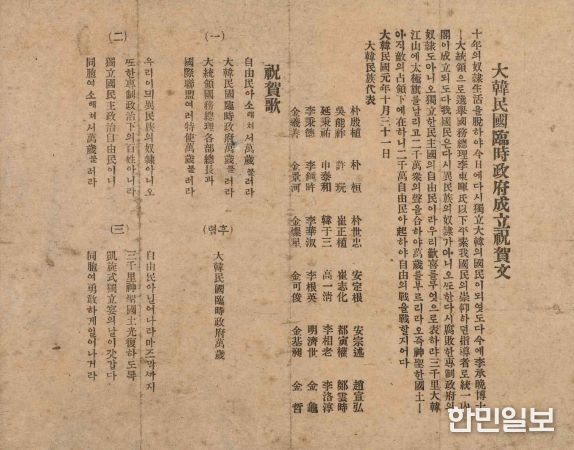 大韓民國臨時政府成立祝賀文
十年의奴隸生活을脫하야今日에다시獨立大韓의國民이되엿도다今에李承晩博士
ㅣ大統領으로選擧國務總理李東暉氏以下平素我國民의崇仰하던指導者로統一內
閣이成立되도다我國民은다시異民族의奴隸가아니오ᄯᅩ한다시腐敗한專制政府의
奴隸도아니오獨立한民主國의自由民이라우리歡喜를무엇으로表하랴三千里大韓
江山에太極旗를날리고二千萬衆의聲을合하야萬歲를부르리라오즉神聖한國土ㅣ
아직敵의占領下에在하니二千萬自由民아起하야自由의戰을戰할지어다
大韓民國元年十月三十一日
大韓民族代表
朴殷植 朴桓 朴世忠 安定根 安宗述 趙宣弘
吳能祚 許玩 崔正植 崔志化 都寅權 鄭雲時
延秉祐 申泰和 韓于三 高一淸 李相老 李洛淳
李秉德 李鍾時 李華淑 李根英 明濟世 金龜
金羲善 金景河 金燦星 金可俊 金基昶 金晢
祝賀歌
(一)
自由民아소래쳐서萬歲불러라
大韓民國臨時政府萬歲불러라
大統領國務總理各部總長과
國際聯盟여러特使萬歲불러라
후렴
大韓民國臨時政府萬歲
(二)
우리이믜異民族의奴隸아니오
ᄯᅩ한專制政治下의百姓아니라
獨立國民主政治自由民이니
同胞여소래쳐서萬歲불러라
(三)
自由民아닐어나라마즈막ᄭᅡ지
三千里神聖國土光復하도록
凱旋式獨立宴의날이갓갑다
同胞여勇敢하게닐어나거라
한민일보